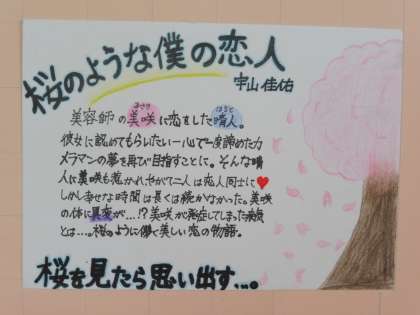 桜のような僕の恋人
宇山佳佑
美容師の美咲に恋をした晴人。
彼女に認めてもらいたい一心で一度諦めたカ
メラマンの夢を再び目指すことに。そんな晴
人に美咲も惹かれ、やがて二人は恋人同士に♥
しかし幸せな時間は長くは続かなかった。美咲
の体に異変が…!?美咲が発症してしまった病気
とは…。桜のように儚く美しい恋の物語。
桜を見たら思い出す…。